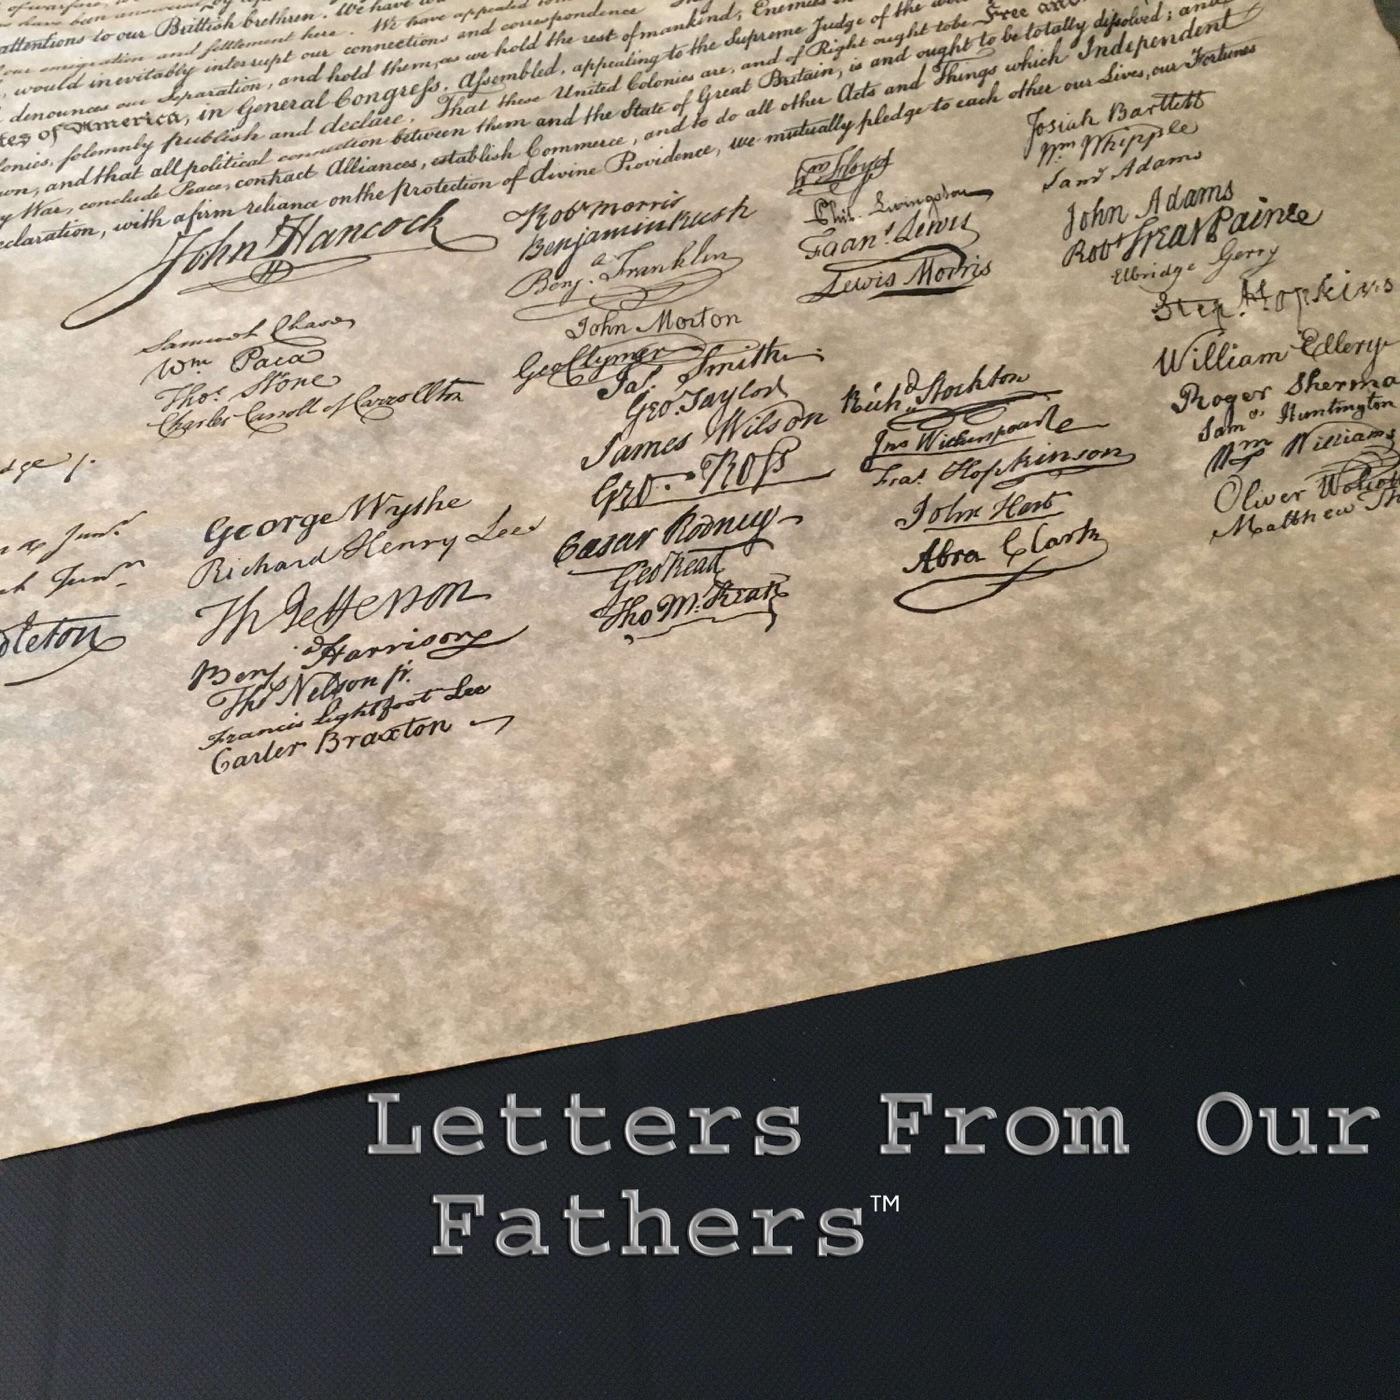 attentions to our Brittish brethren. We have
our emigration and settlement here. We have appealed to
would inevitably interrupt our connections and correspondence
denounces our Separation, and hold them, as we hold the rest of mankind, Enemies
tes of America, in General Congress, Assembled, appealing to the Supreme Judge of the
lonies, solemnly publish and declare, That these United Colonies are, and of Right ought to be Free and
wn, and that all political connection between them and the State of Great Britain, is and ought to be totally dissolved; and
y War, conclude Peace, contract Alliances, establish Commerce, and to do all other Acts and Things which Independent
eclaration, with a firm reliance on the protection of divine Providence, we mutually pledge to each other our Lives, our Fortunes
John Hancock
Samuel Chase
Wm Paca
Thos. Stone
Charles Carroll of Carrollton
George Wythe
Richard Henry Lee
Th Jefferson
Benj. Harrison
Thos Nelson jr.
Francis Lightfoot Lee
Carter Braxton
Robt Morris
Benjamin Rush
Benj. Franklin
John Morton
Geo Clymer
Jas. Smith
Geo. Taylor
James Wilson
Geo. Ross
Caesar Rodney
Geo Read
Tho M:Kean
Wm Floyd
Phil. Livingston
Frans. Lewis
Lewis Morris
Richd. Stockton
Jno Witherspoon
Fras. Hopkinson
John Hart
Abra Clark
Josiah Bartlett
Wm Whipple
Saml Adams
John Adams
Robt Treat Paine
Elbridge Gerry
Step. Hopkins
William Ellery
Roger Sherma
Saml. Huntington
Wm Williams
Oliver Wolcot
Matthew Th
Letters From Our
Fathers™